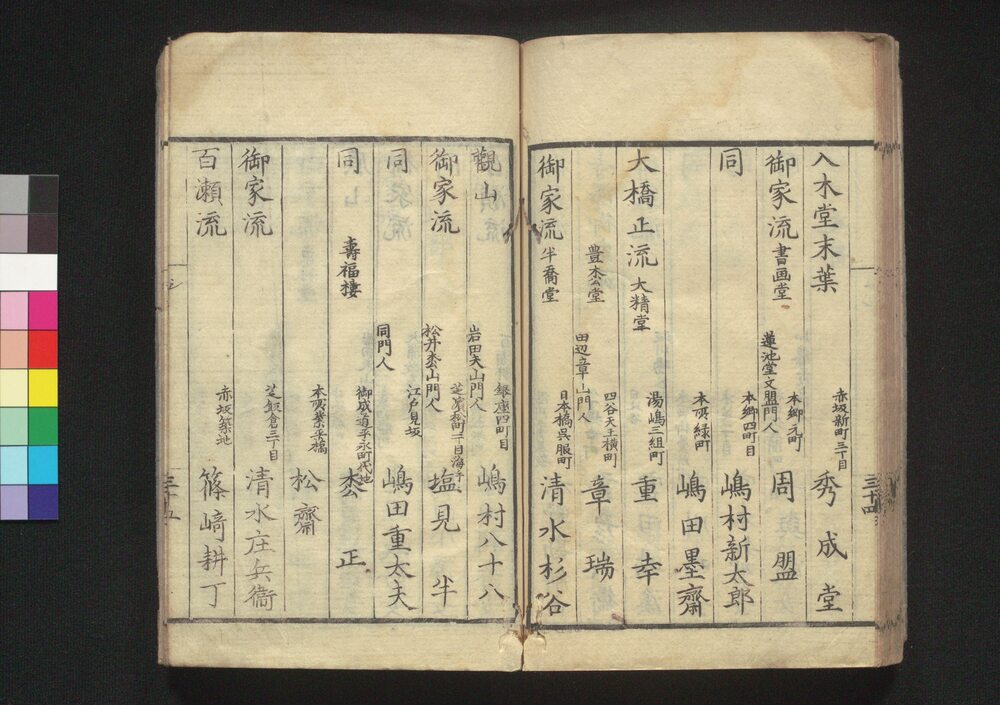 入木堂末葉 赤坂新町三丁目 秀成堂
御家流 書画堂 蓮池堂文盟門人 本郷元町 周盟
同 本郷四町目 嶋村新太郎
本所緑町 嶋田墨齋
大橋正流 大精堂 湯嶋三組町 重幸
豊杢堂 田辺章山門人 四谷天王横町 章瑞
御家流 半喬堂 日本橋呉服町 清水杉谷
三十四
觀山 岩田夫山門人 銀座四町目 嶋村八十八
御家流 松井杢山門人 芝濱松町一丁目海手 塩見半
同 同門人 江戸見坂 嶋田重太夫
同 壽福棲 御成道平永町代地 杢正
本所業平橋 松齋
御家流 芝飯倉三丁目 清水庄兵衞
百瀬流 赤坂築地 篠崎耕丁
三十五